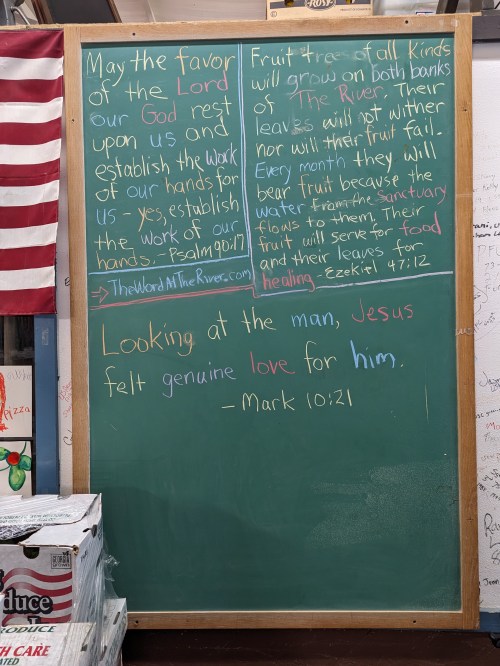 May the favor
of the Lord
our God rest
upon us and
establish the work
of our hands for
us - yes, establish
the work of our
hands. - Psalm 90:17
⇒ TheWordAtTheRiver.com
Fruit trees of all kinds
will grow on both banks
of The River. Their
leaves will not wither
nor will their fruit fail.
Every month they will
bear fruit because the
water from the sanctuary
flows to them. Their
fruit will serve for food
and their leaves for
healing - Ezekiel 47:12
Looking at the man, Jesus
felt genuine love for him.
- Mark 10:21
Pizza
duce
RODUCE
TH CARE